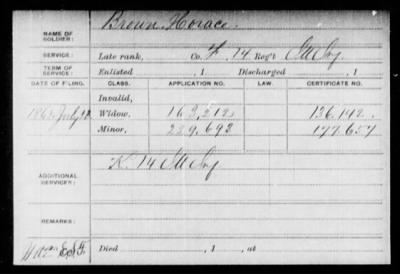 Brown, Horace.
NAME OF SOLDIER:
SERVICE: Late rank, Co. F, 14 Reg't Ill Inf
TERM OF SERVICE: Enlisted , 1 Discharged , 1
DATE OF FILING. CLASS. APPLICATION NO. LAW. CERTIFICATE NO.
Invalid,
July Widow, 163,212 136,142
Minor, 229,693 177,657
ADDITIONAL SERVICES: K. 14 Ill Inf
REMARKS:
Died , 1 , at